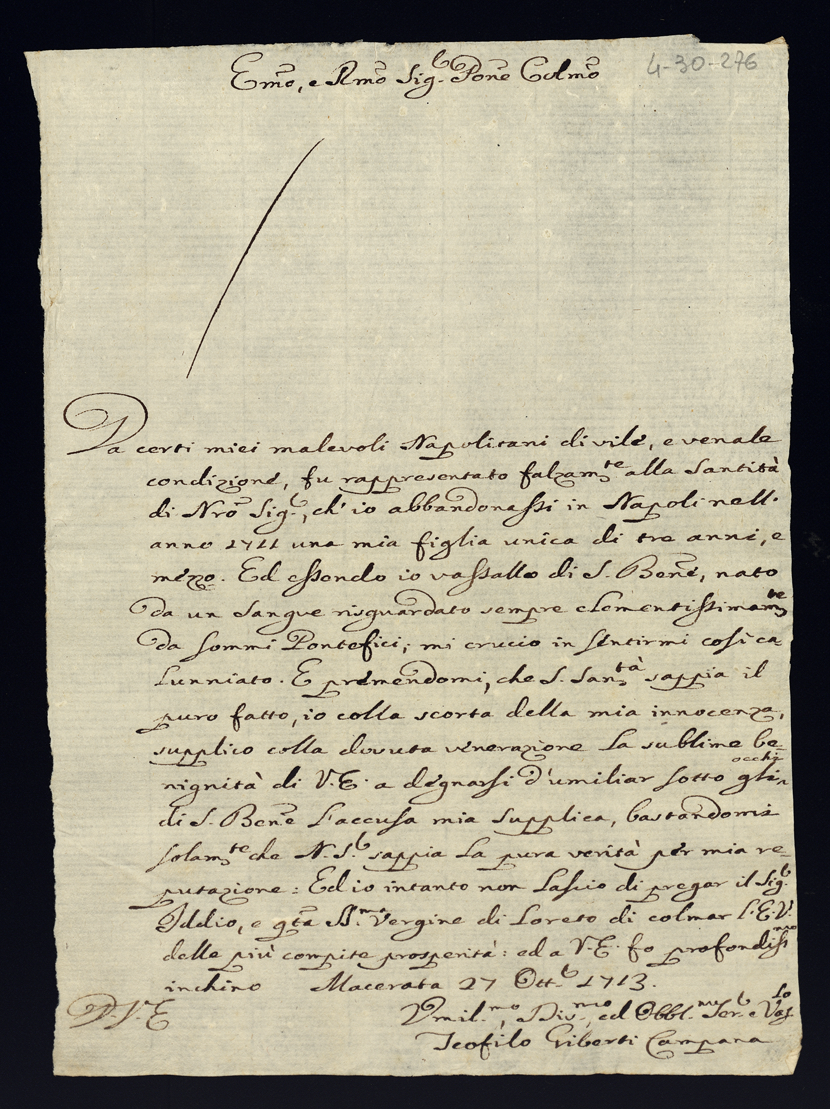 4-30-276
Emo, e Rmo Sigr Pone Colmo
Da certi miei malevoli Napolitani di vile, e venale
condizione, fu rappresentato falzamte alla Santità
di Nro Sigr, ch' io abbandonassi in Napoli nell'
anno 1711 una mia figlia unica di tre anni, e
mezzo. Ed essendo io vassallo di S. Bene, nato
da un sangue risguardato sempre clementissimamte
da sommi Pontefici; mi crucio in sentirmi così ca
lunniato. E premendomi, che S. Santà sappia il
puro fatto, io colla scorta della mia innocenza,
supplico colla dovuta venerazione la sublime be
nignità di V. E. a degnarsi d'umiliar sotto gli occhi
di S. Bene l'accusa mia supplica, bastandomi
solamte che N. Sr sappia la pura verità per mia re
putazione: Ed io intanto non lascio di pregar il Sigr
Iddio, e qta Bma Vergine di Loreto di colmar l'E. V.
delle più compite prosperità: ed a V. E. fo profondissmo
inchino Macerata 27 Otte 1713.
D. V. E
Umilmo, Divmo, ed Obblmo Serr e Vaslo
Teofilo Giberti Campana